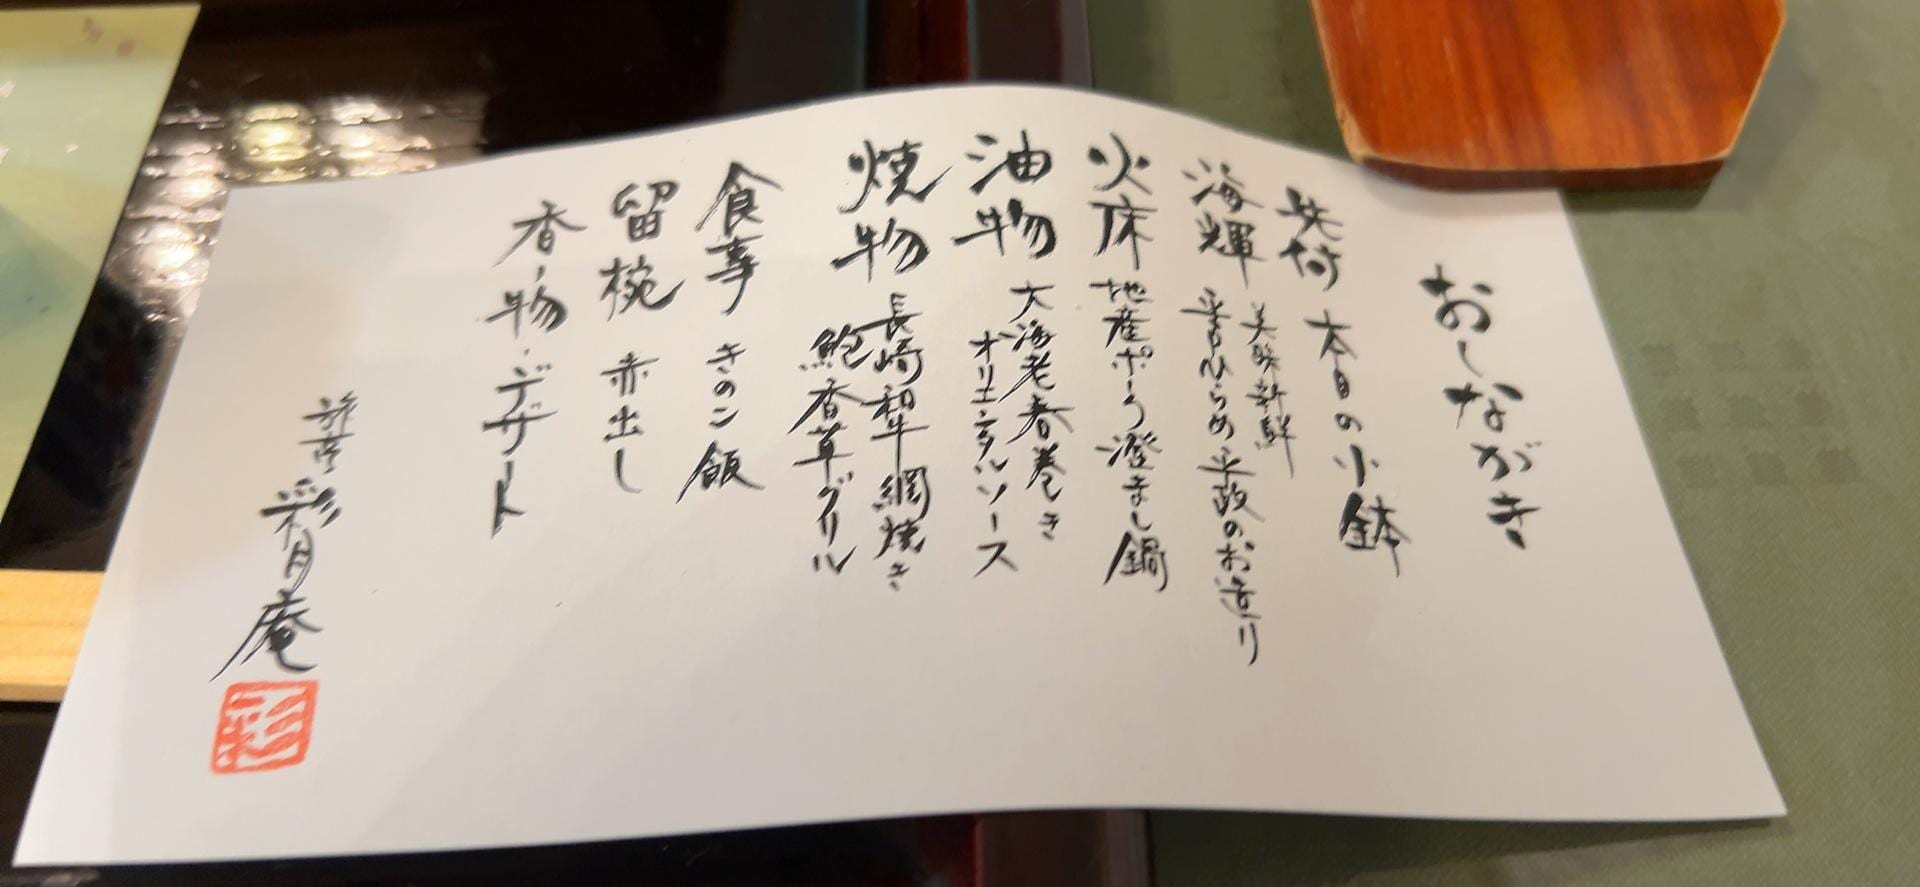 おしながき
先付 本日の小鉢
海輝 美味新鮮
平戸ひらめ 平政のお造り
火床 地産ポーク澄まし鍋
油物 大海老春巻き
オリエンタルソース
焼物 長崎和牛網焼き
鮑香草グリル
食事 きのこ飯
留椀 赤出し
香の物・デザート
旅亭 彩月庵
彩